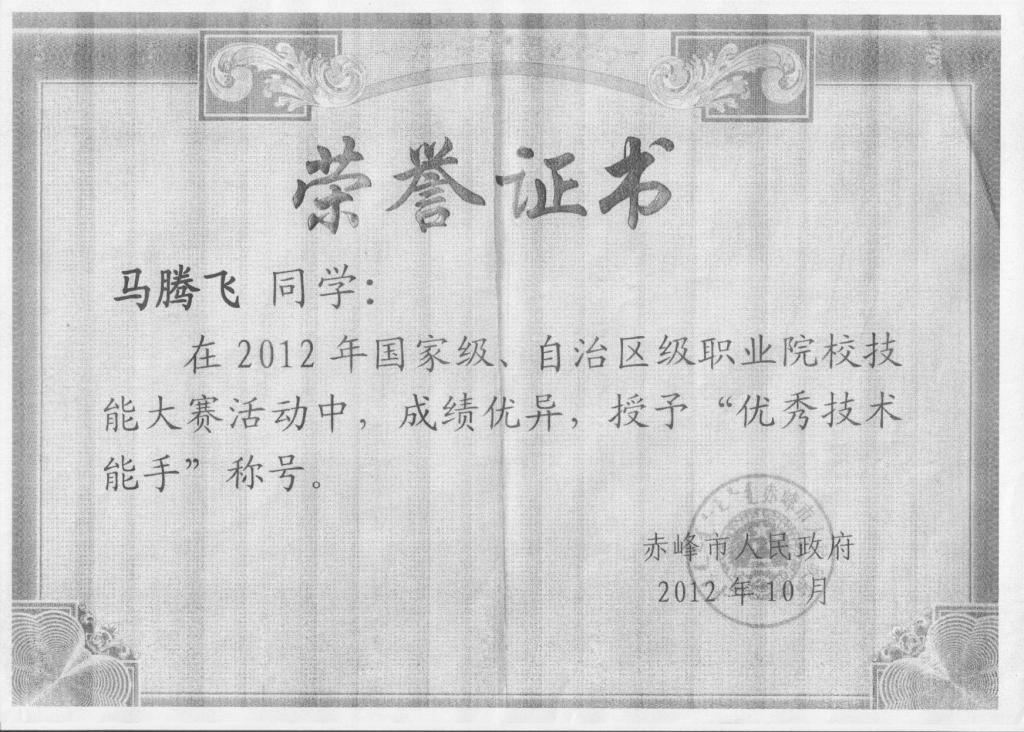 荣誉证书
马腾飞 同学：
在2012年国家级、自治区级职业院校技
能大赛活动中，成绩优异，授予“优秀技术
能手”称号。
赤峰市人民政府
2012年10月
赤峰市人